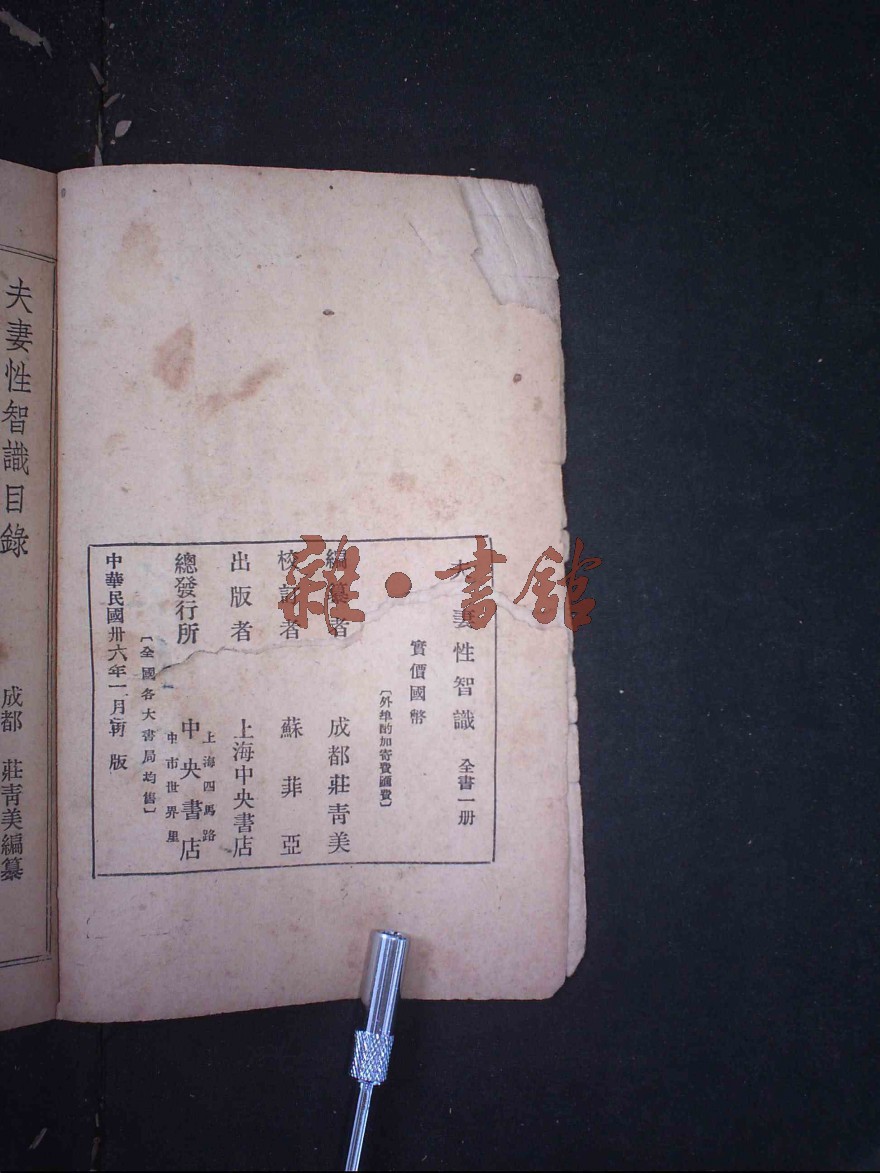 夫妻性智識 全書一册
實價國幣
〔外埠酌加寄費匯費〕
編纂者 成都莊青美
校訂者 蘇菲亞
出版者 上海中央書店
總發行所 中央書店
上海四馬路
中市世界里
〔全國各大書局均售〕
中華民國卅六年一月新版
夫妻性智識目錄
成都 莊青美編纂
雜·書館